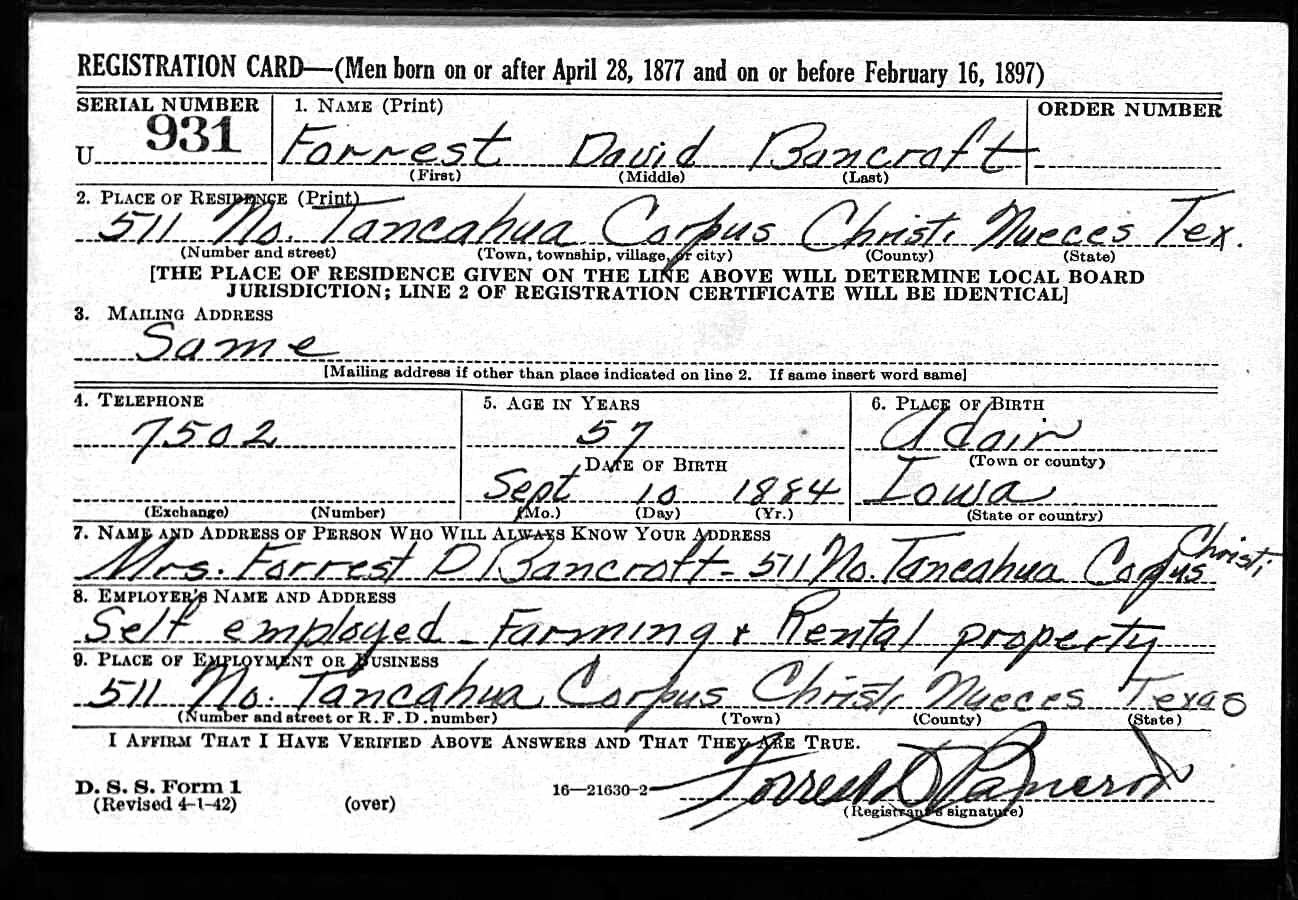 REGISTRATION CARD—(Men born on or after April 28, 1877 and on or before February 16, 1897)
SERIAL NUMBER 1. NAME (Print) ORDER NUMBER
U 931 Forrest David Bancroft
(First) (Middle) (Last)
2. PLACE OF RESIDENCE (Print)
511 No. Tancahua Corpus Christi Nueces Tex.
(Number and street) (Town, township, village, or city) (County) (State)
[THE PLACE OF RESIDENCE GIVEN ON THE LINE ABOVE WILL DETERMINE LOCAL BOARD
JURISDICTION; LINE 2 OF REGISTRATION CERTIFICATE WILL BE IDENTICAL]
3. MAILING ADDRESS
Same
[Mailing address if other than place indicated on line 2. If same insert word same]
4. TELEPHONE 5. AGE IN YEARS 6. PLACE OF BIRTH
7502 57 Adair
DATE OF BIRTH (Town or county)
Sept 10 1884 Iowa
(Exchange) (Number) (Mo.) (Day) (Yr.) (State or country)
7. NAME AND ADDRESS OF PERSON WHO WILL ALWAYS KNOW YOUR ADDRESS
Mrs. Forrest D Bancroft - 511 No. Tancahua Corpus Christi
8. EMPLOYER'S NAME AND ADDRESS
Self employed - Farming + Rental property
9. PLACE OF EMPLOYMENT OR BUSINESS
511 No. Tancahua Corpus Christi Nueces Texas
(Number and street or R. F. D. number) (Town) (County) (State)
I AFFIRM THAT I HAVE VERIFIED ABOVE ANSWERS AND THAT THEY ARE TRUE.
D. S. S. Form 1 16—21630-2 Forrest D Bancroft
(Revised 4-1-42) (over) (Registrant's signature)